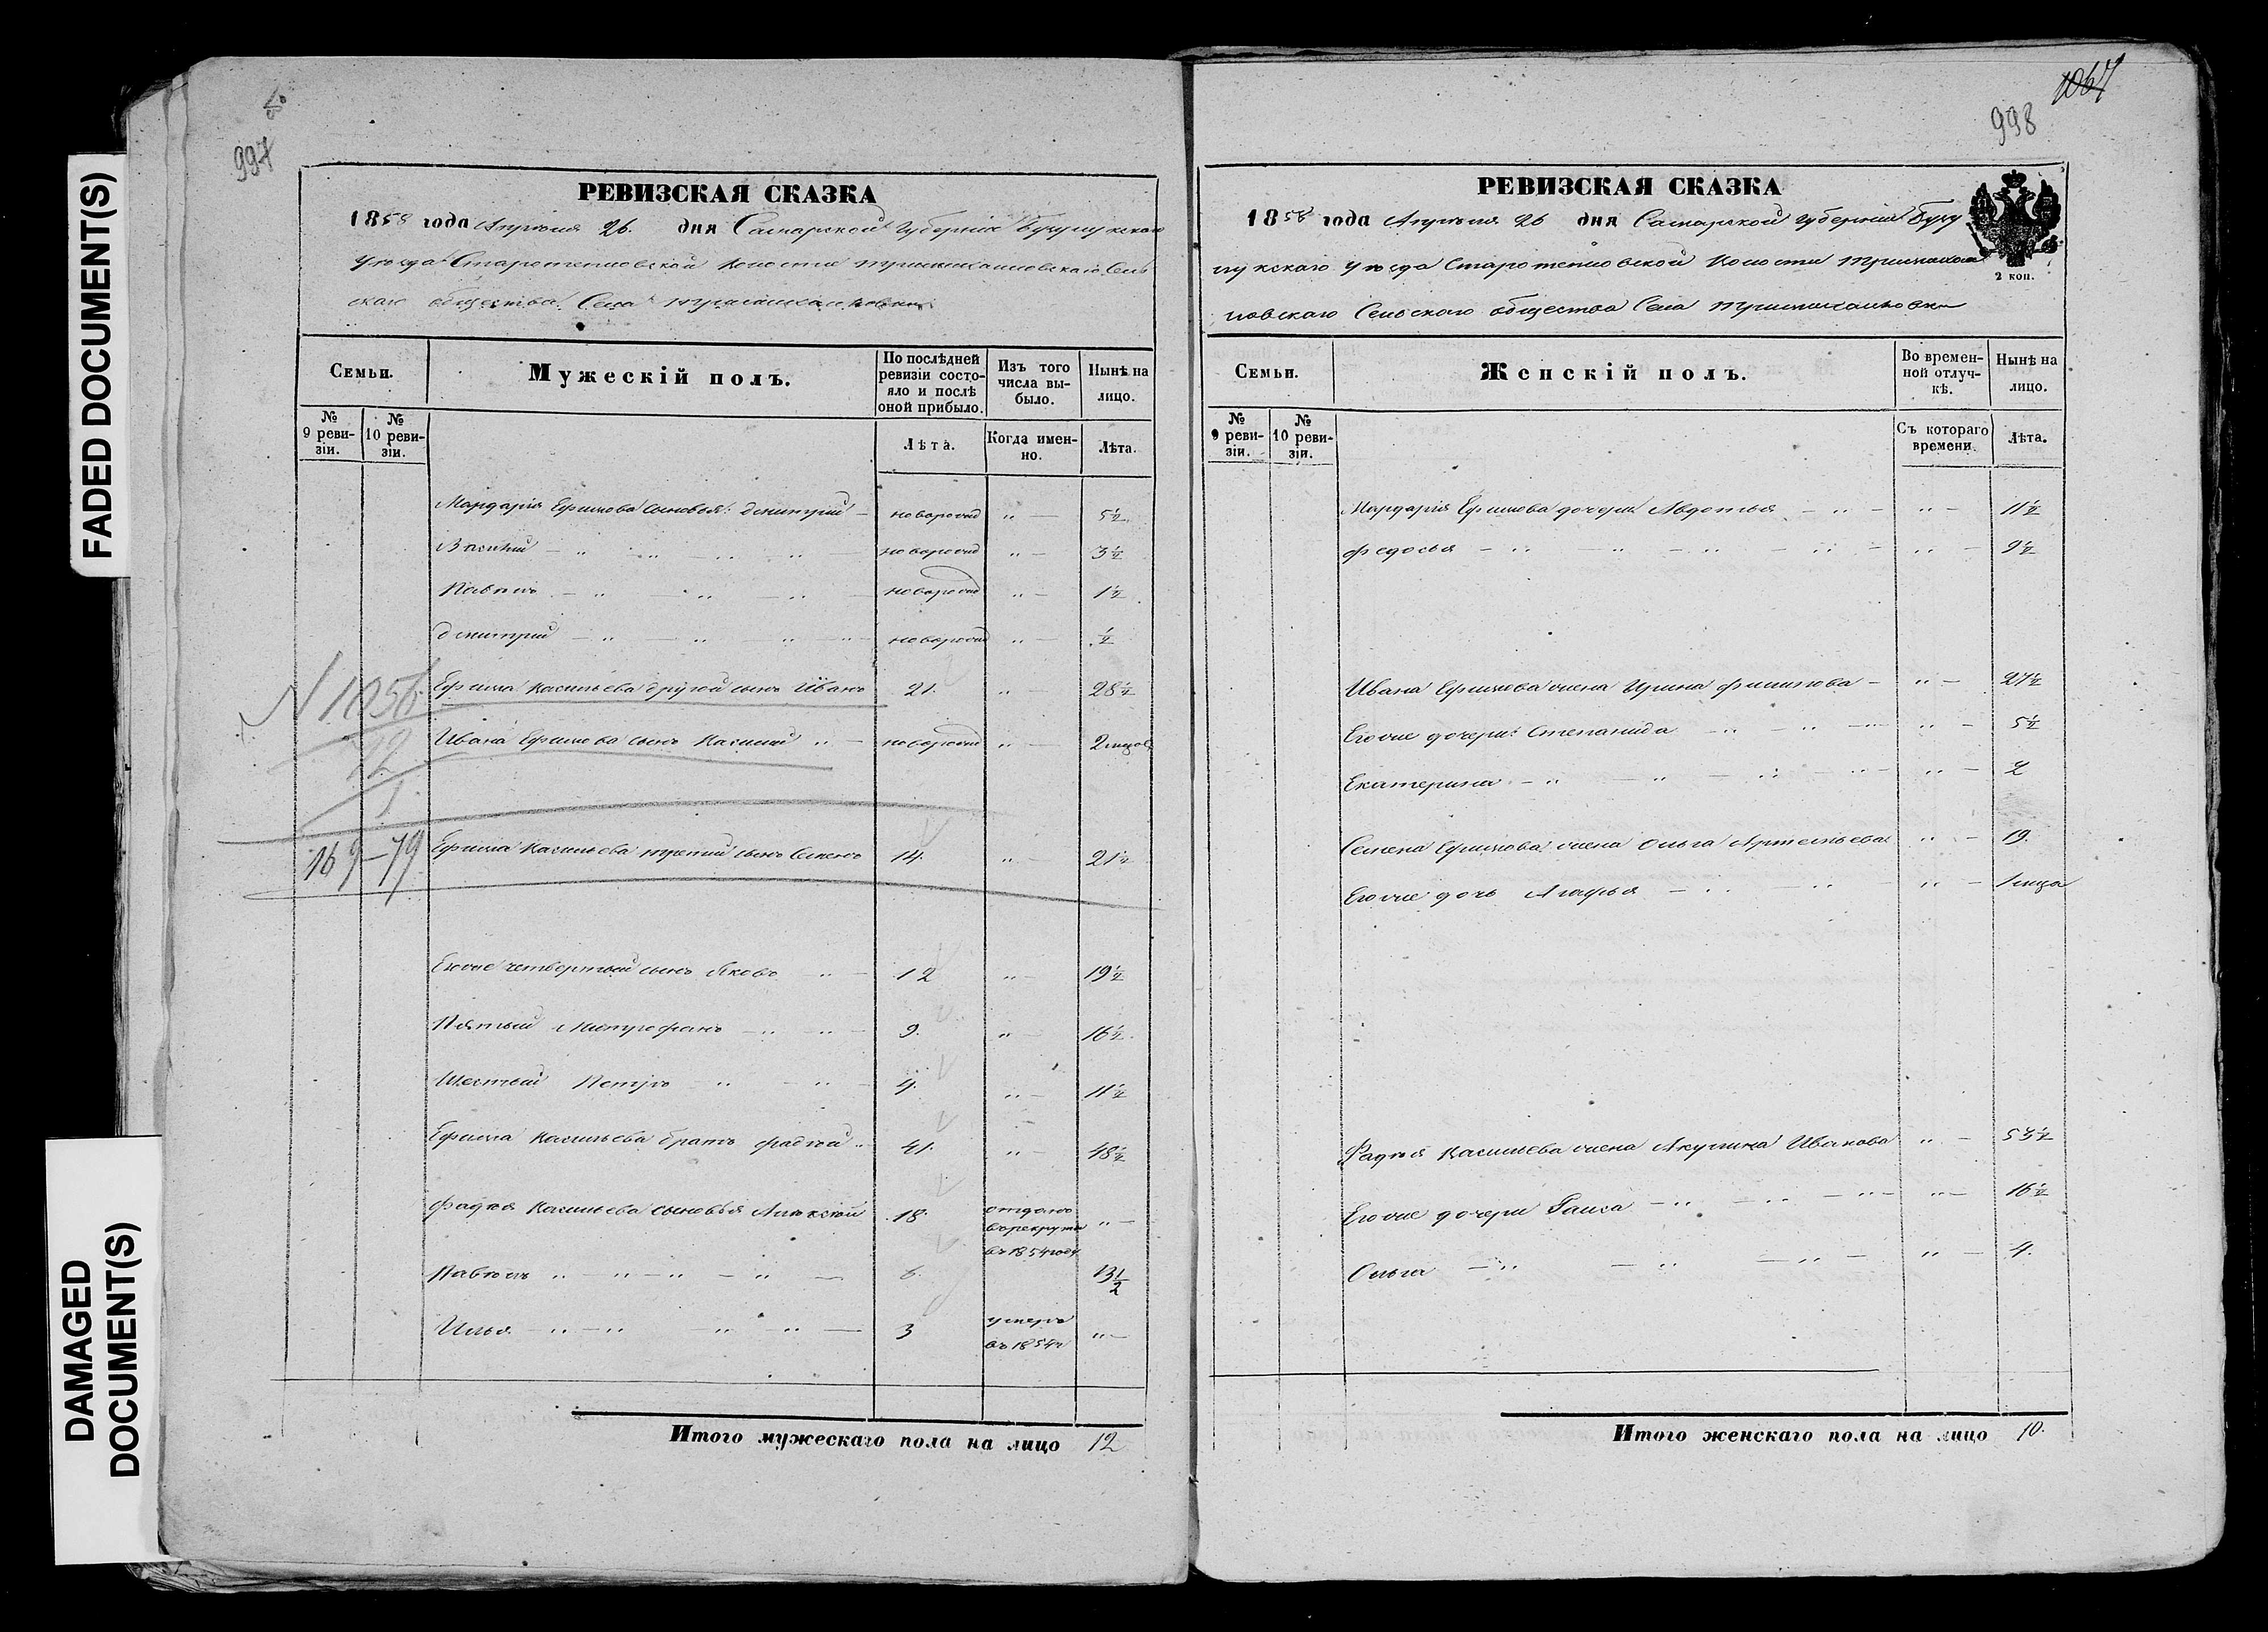 FADED DOCUMENT(S)
DAMAGED
DOCUMENT(S)
997
РЕВИЗСКАЯ СКАЗКА
1858 года Апреля 26. дня Самарской Губернии Бугурусланского
Уезда
общества Села
Семьи.
Мужескій полъ.
По послѣдней
ревизіи состо-
яло и послѣ
оной прибыло.
Изъ того
числа вы-
было.
Нынѣ на
лицо.
№
9 реви-
зіи.
№
10 реви-
зіи.
Лѣта.
Когда имен-
но.
Лѣта.
Мардарія Ефимова сыновья: Дмитрий новорожд „ 5½
Василий „ „ „ „ новорожд „ 3½
Павелъ „ „ „ новорожд „ 1½
Дмитрий „ „ „ „ новорожд „ ½
N 1056 Ефима Васильева другой сынъ Иванъ 21. „ 28½
12 Ивана Ефимова сынъ Василий „ новорожд „ 2 мцов
1
169-79 Ефима Васильева третий сынъ Семенъ 14. „ 21½
Еговже четвертый сынъ Яковъ „ 12 „ 19½
Пятый Митрофанъ „ „ 9. „ 16½
Шестый Петръ „ „ 4. „ 11½
Ефима Васильева братъ Фадей „ 41. „ 48½
Фадея Васильева сыновья Алексей 18 отданъ
в рекруты „
въ 1854 году
Павелъ „ „ „ „ 6. 13½
Илья „ „ „ „ 3 умеръ
въ 1854 г „
Итого мужескаго пола на лицо 12
1067
998
РЕВИЗСКАЯ СКАЗКА
1858 года Апреля 26 дня Самарской Губернии Бугу
2 коп.
Уезда
Сельского общества Села
Семьи.
Женскій полъ.
Во времен-
ной отлуч-
кѣ.
Нынѣ на
лицо.
№
9 реви-
зіи.
№
10 реви-
зіи.
Съ котораго
времени.
Лѣта.
Мардария Ефимова дочери Авдотья „ „ 11½
Федосья „ „ „ „ „ 9½
Ивана Ефимова жена Ирина Филипова „ 27½
Еговже дочери: Степанида „ „ „ „ 5½
Екатерина „ „ „ „ „ 2
Семена Ефимова жена Ольга Артемьева „ 19.
Еговже дочь Агафья „ „ „ 1 мца
Фадея Васильева жена Акулина Иванова „ 53½
Еговже дочери Раиса „ „ „ „ 16½
Ольга „ „ „ „ 4.
Итого женскаго пола на лицо 10.